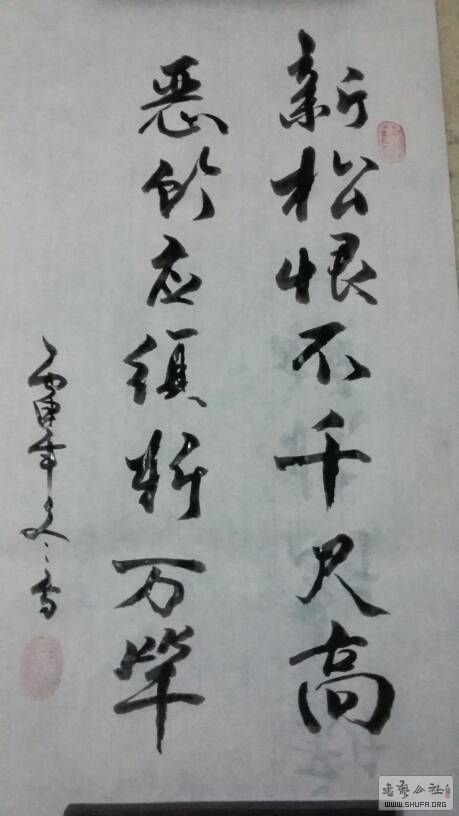 新松恨不千尺高
恶竹应须斩万竿
丙申年
書藝公社
WWW.SHUFA.ORG